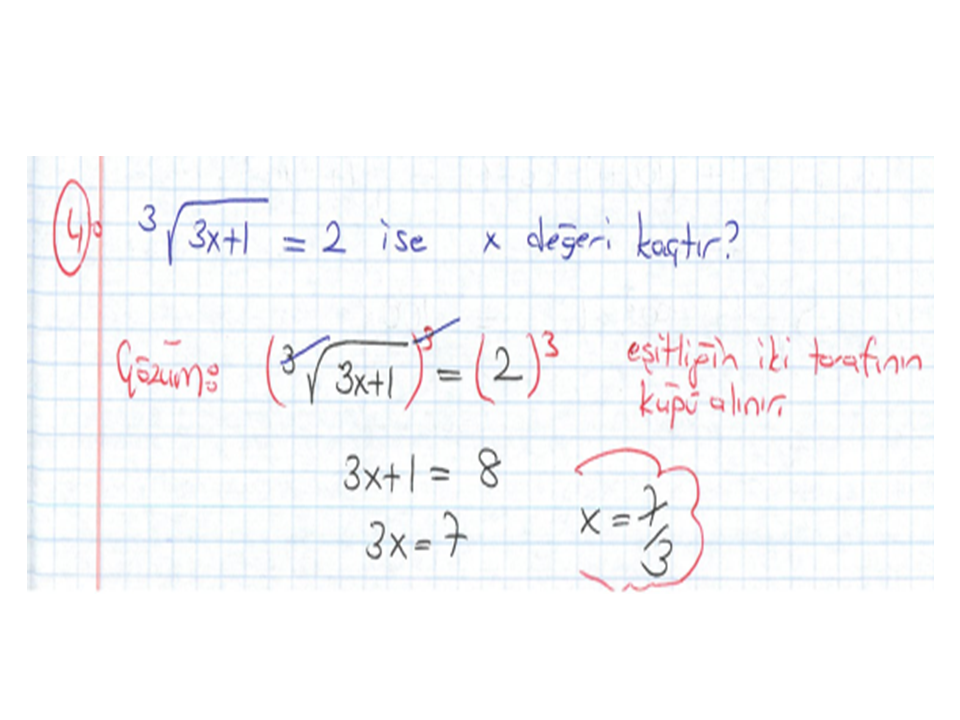 4) ∛(3x+1) = 2 ise x değeri kaçtır?
Çözüm: (∛(3x+1))³ = (2)³ eşitliğin iki tarafının
küpü alınır.
3x+1 = 8
3x = 7
x = 7/3